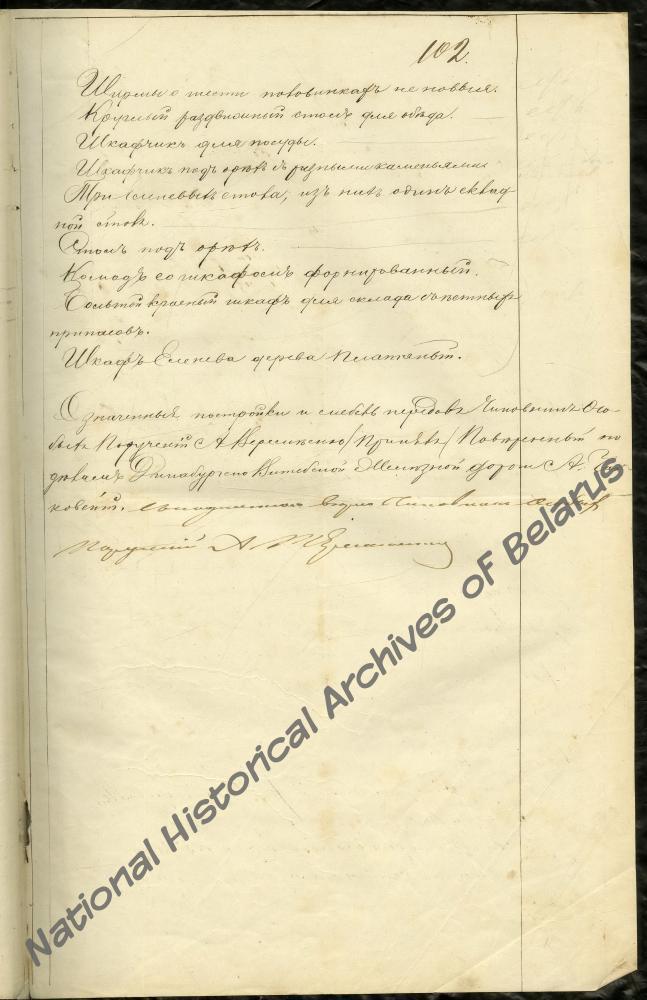 102.
Ширмы о шести половинкахъ не новыя.
Круглый раздвижный столъ для обѣда.
Шкафчикъ для посуды.
Шкафчикъ подъ орѣхъ съ разными каменьями
Три столa, изъ нихъ одинъ склад-
ной столъ.
Столъ подъ орѣхъ.
Комодъ со шкафомъ форнированный.
Большой красный шкафъ для склада съѣстныхъ
припасовъ.
Шкафъ дерева платяный.
Означенныя постройки и мебель передалъ Чиновникъ Осо-
быхъ Порученій А. Принялъ Повѣренный по
дѣламъ Динабургско Витебской Желѣзной дороги А.
Чиновникъ
порученій А.
National Historical Archives of Belarus